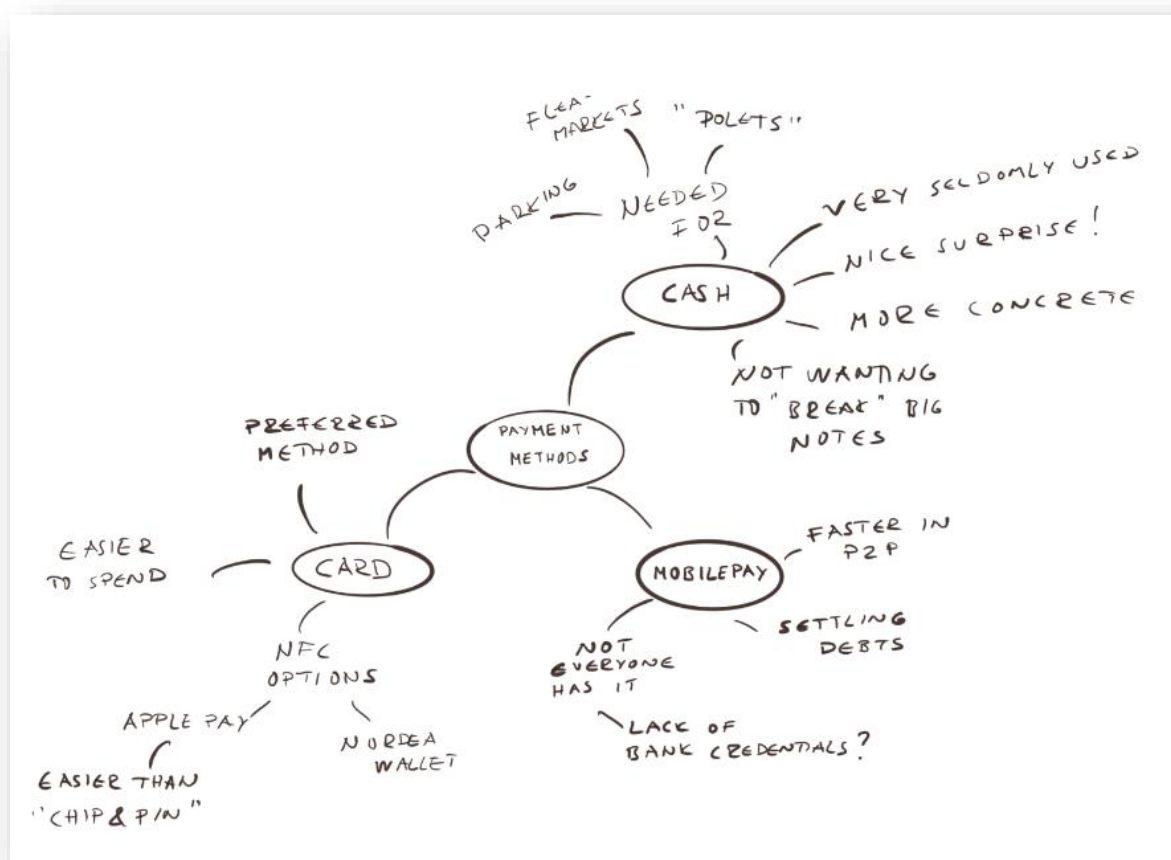 FLEA-
MARKETS
"POLETS"
PARKING
NEEDED
FOR
CASH
VERY SELDOMLY USED
NICE SURPRISE!
MORE CONCRETE
NOT WANTING
TO "BREAK" BIG
NOTES
PAYMENT
METHODS
PREFERRED
METHOD
EASIER
TO SPEND
CARD
NFC
OPTIONS
APPLE PAY
EASIER THAN
"CHIP & PIN"
NORDEA
WALLET
MOBILEPAY
FASTER IN
P2P
SETTLING
DEBTS
NOT
EVERYONE
HAS IT
LACK OF
BANK CREDENTIALS?